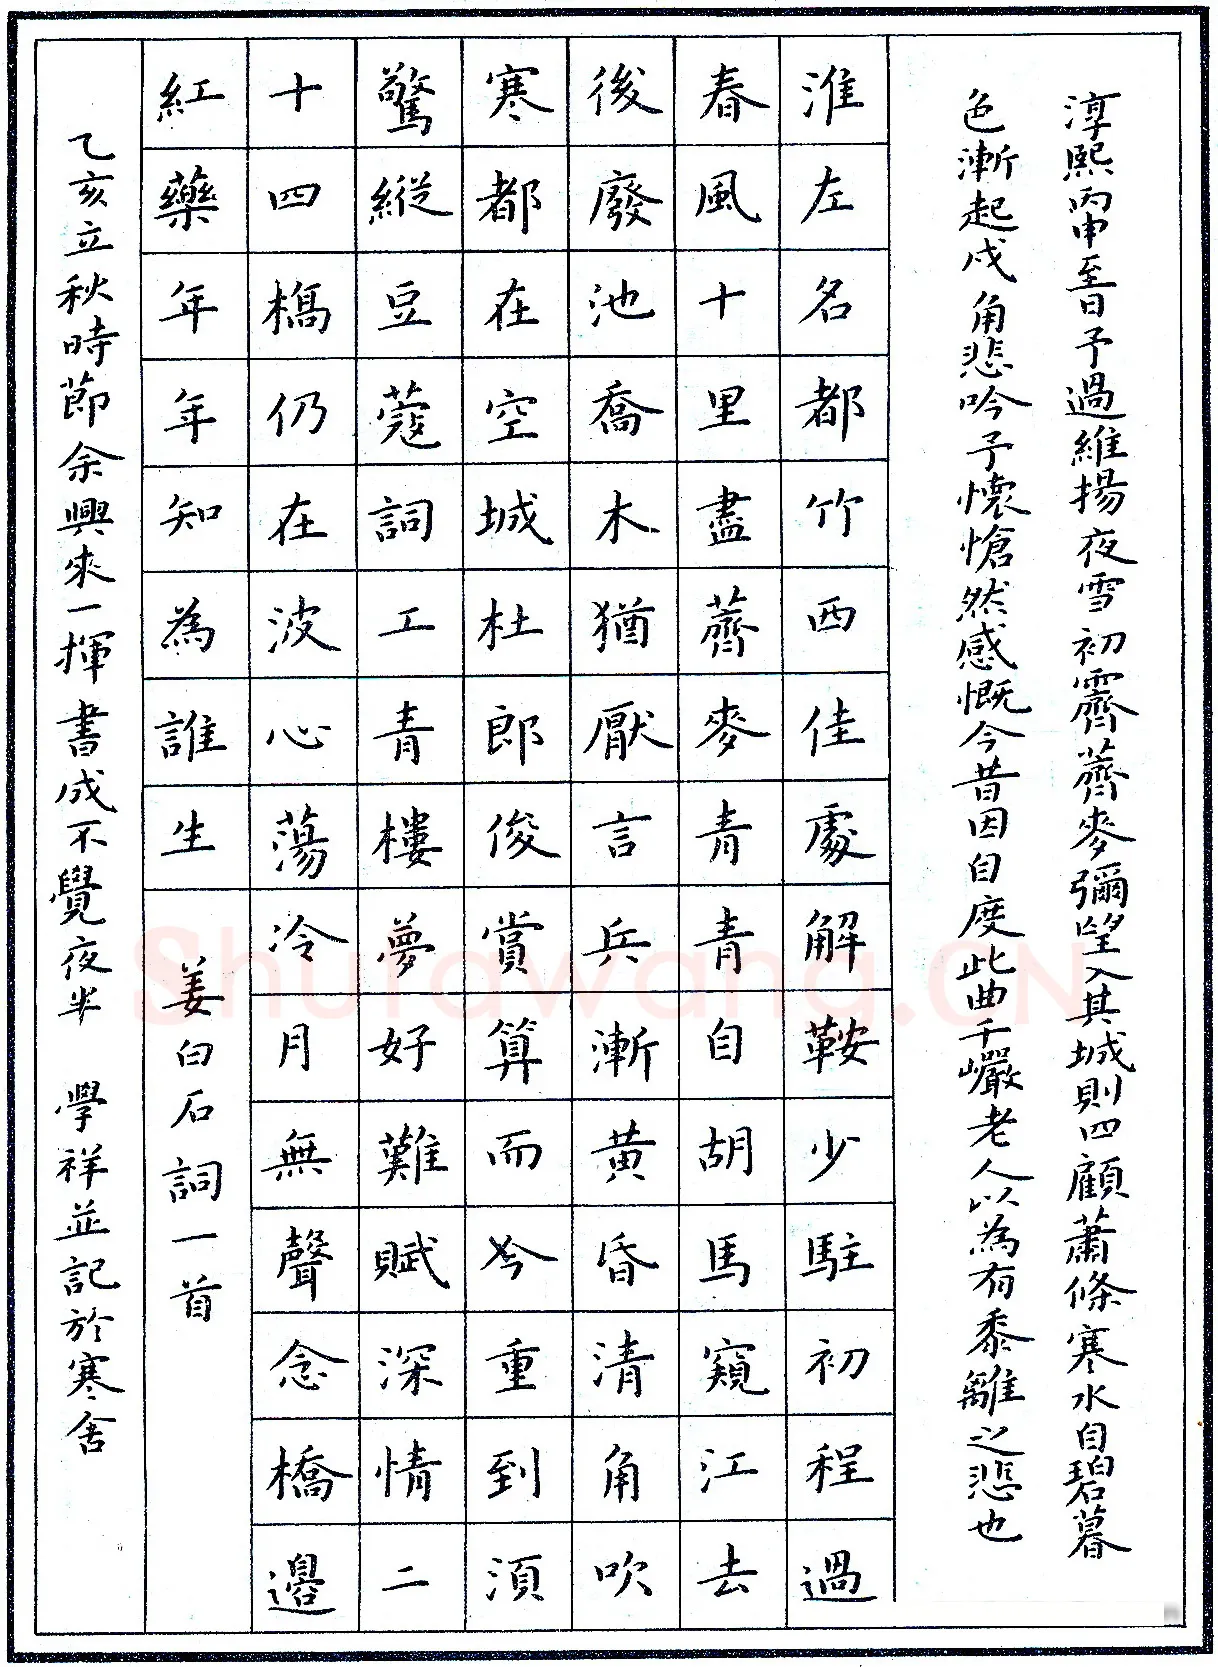 淳熙丙申至日予過維揚夜雪初霽薺麥彌望入其城則四顧蕭條寒水自碧暮
色漸起戍角悲吟予懷愴然感慨今昔因自度此曲千巖老人以為有黍離之悲也
淮左名都竹西佳處解鞍少駐初程過
春風十里盡薺麥青青自胡馬窺江去
後廢池喬木猶厭言兵漸黃昏清角吹
寒都在空城杜郎俊賞算而今重到須
驚縱豆蔻詞工青樓夢好難賦深情二
十四橋仍在波心蕩冷月無聲念橋邊
紅藥年年知為誰生 姜白石詞一首
乙亥立秋時節余興來一揮書成不覺夜半 學祥並記於寒舍
Shufawang.CN